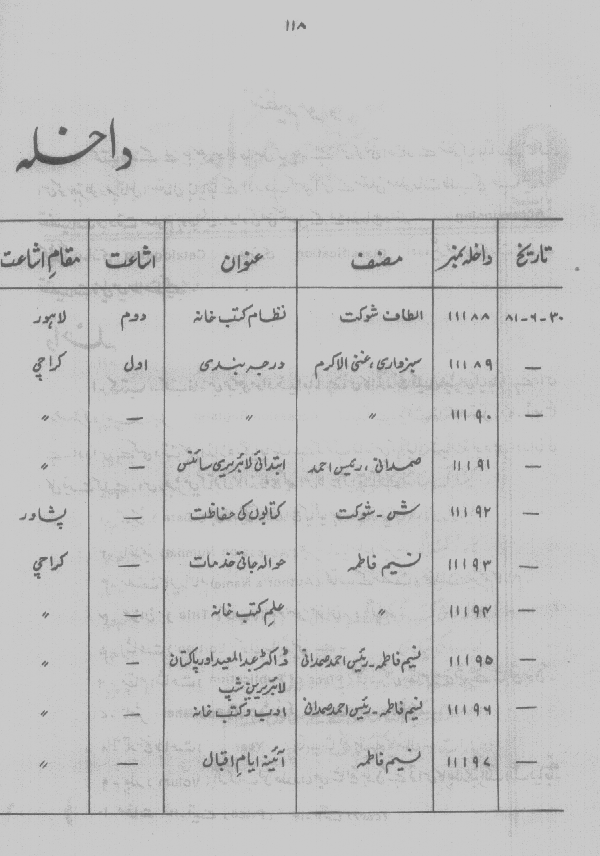 ۱۱۸
داخلہ
تاریخ داخلہ نمبر مصنف عنوان اشاعت مقامِ اشاعت
۳۰-۶-۸۱ ۱۱۱۸۸ الطاف شوکت نظام کتب خانہ دوم لاہور
— ۱۱۱۸۹ سبزواری، غنی الاکرم درجہ بندی اول کراچی
— ۱۱۱۹۰ " " — "
— ۱۱۱۹۱ صمدانی، رئیس احمد ابتدائی لائبریری سائنس — "
— ۱۱۱۹۲ ش - شوکت کتابوں کی حفاظت — پشاور
— ۱۱۱۹۳ نسیم فاطمہ حوالہ جاتی خدمات — کراچی
— ۱۱۱۹۴ " علمِ کتب خانہ — "
— ۱۱۱۹۵ نسیم فاطمہ - رئیس احمد صمدانی ڈاکٹر عبدالمعید اور پاکستان — "
لائبریرین شپ
— ۱۱۱۹۶ نسیم فاطمہ - رئیس احمد صمدانی ادب و کتب خانہ — "
— ۱۱۱۹۷ نسیم فاطمہ آئینۂ ایامِ اقبال — "